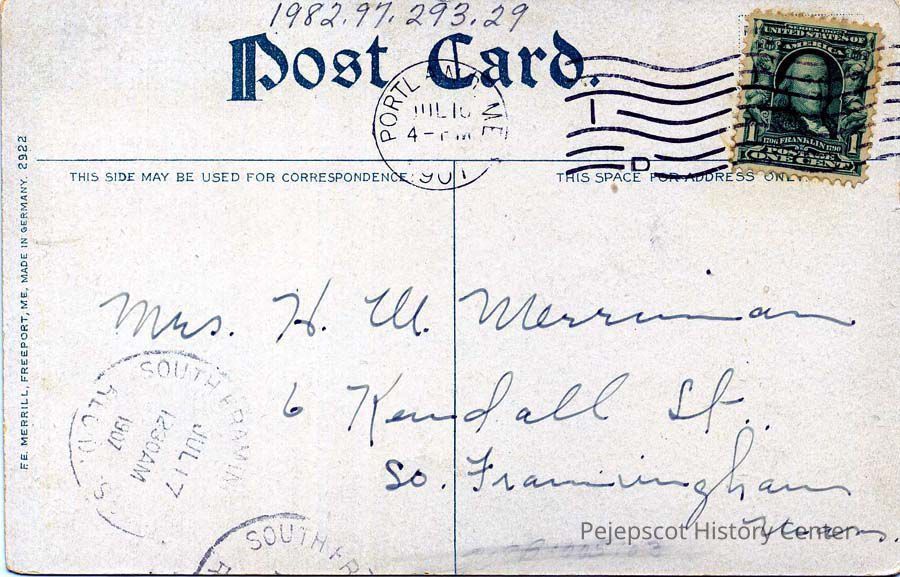 1982.97.293.29
Post Card.
PORTLAND, ME
JUL 16
4 - PM
1907
SERIES 1902
UNITED STATES OF
AMERICA
1706 FRANKLIN 1790
1 POSTAGE 1
ONE CENT
D
THIS SIDE MAY BE USED FOR CORRESPONDENCE.
THIS SPACE FOR ADDRESS ONLY.
F.E. MERRILL, FREEPORT, ME, MADE IN GERMANY. 2922
Mrs. H. M. Merriman
6 Kendall St.
So. Framingham
Mass.
SOUTH FRAMIN
JUL 17
1230AM
1907
REC'D.
SOUTH FR
Pejepscot History Center